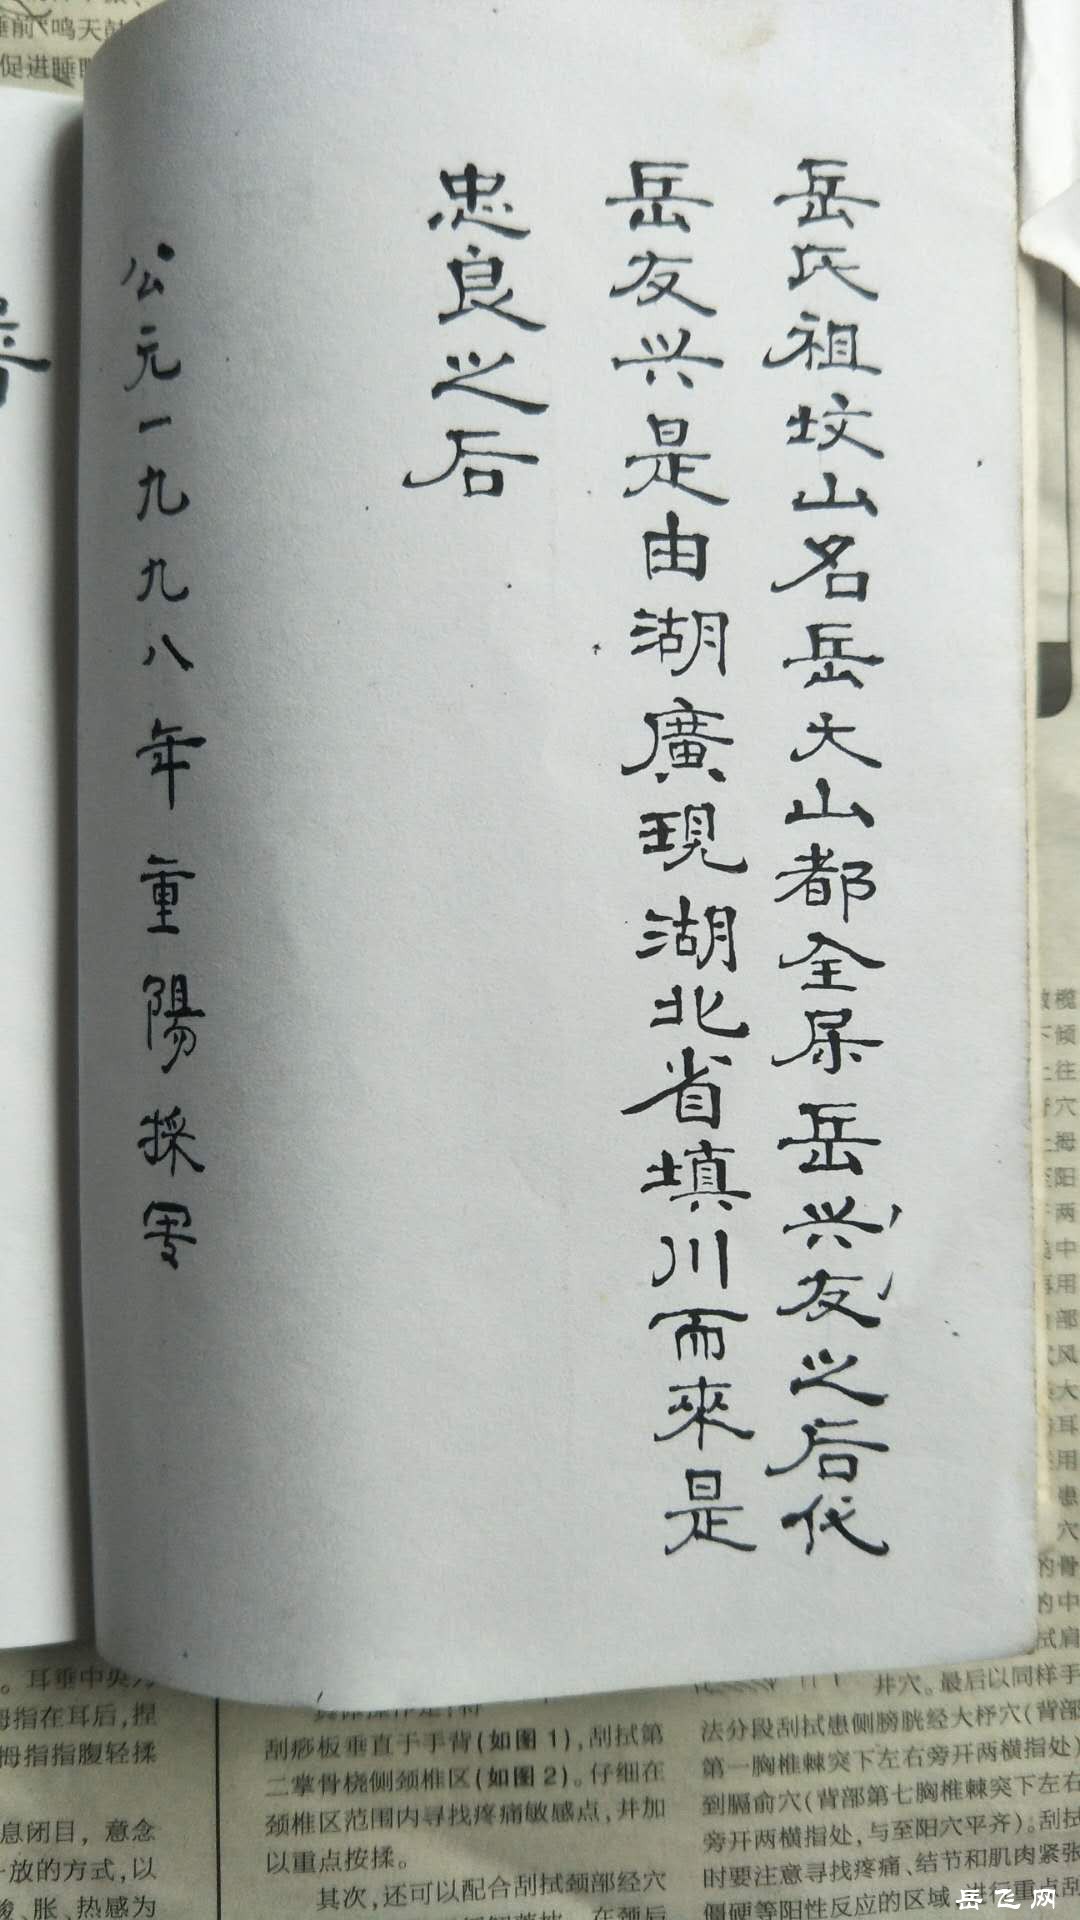 岳氏祖坟山名岳大山都全屎岳兴友之后代
岳友兴是由湖廣現湖北省填川而來是
忠良之后
公元一九九八年重陽採
垂前 鸣天鼓
促进睡眠
。耳垂中央为
拇指在耳后，捏
拇指指腹轻揉
息闭目，意念
一放的方式，以
酸、胀、热感为
刮痧板垂直于手背(如图1)，刮拭第
二掌骨桡侧颈椎区(如图2)。仔细在
颈椎区范围内寻找疼痛敏感点，并加
以重点按揉。
其次，还可以配合刮拭颈部经穴
榄
下倾
上往
穴
上拇
至阳
下两
中
再用
部
式风
大
耳
用
患
穴
的骨
的中
拭肩
井穴。最后以同样手
法分段刮拭患侧膀胱经大杼穴(背部
第一胸椎棘突下左右旁开两横指处)
到膈俞穴(背部第七胸椎棘突下左右
旁开两横指处，与至阳穴平齐)。刮拭
时要注意寻找疼痛、结节和肌肉紧张
僵硬等阳性反应的区域，进行重点刮
岳飞网